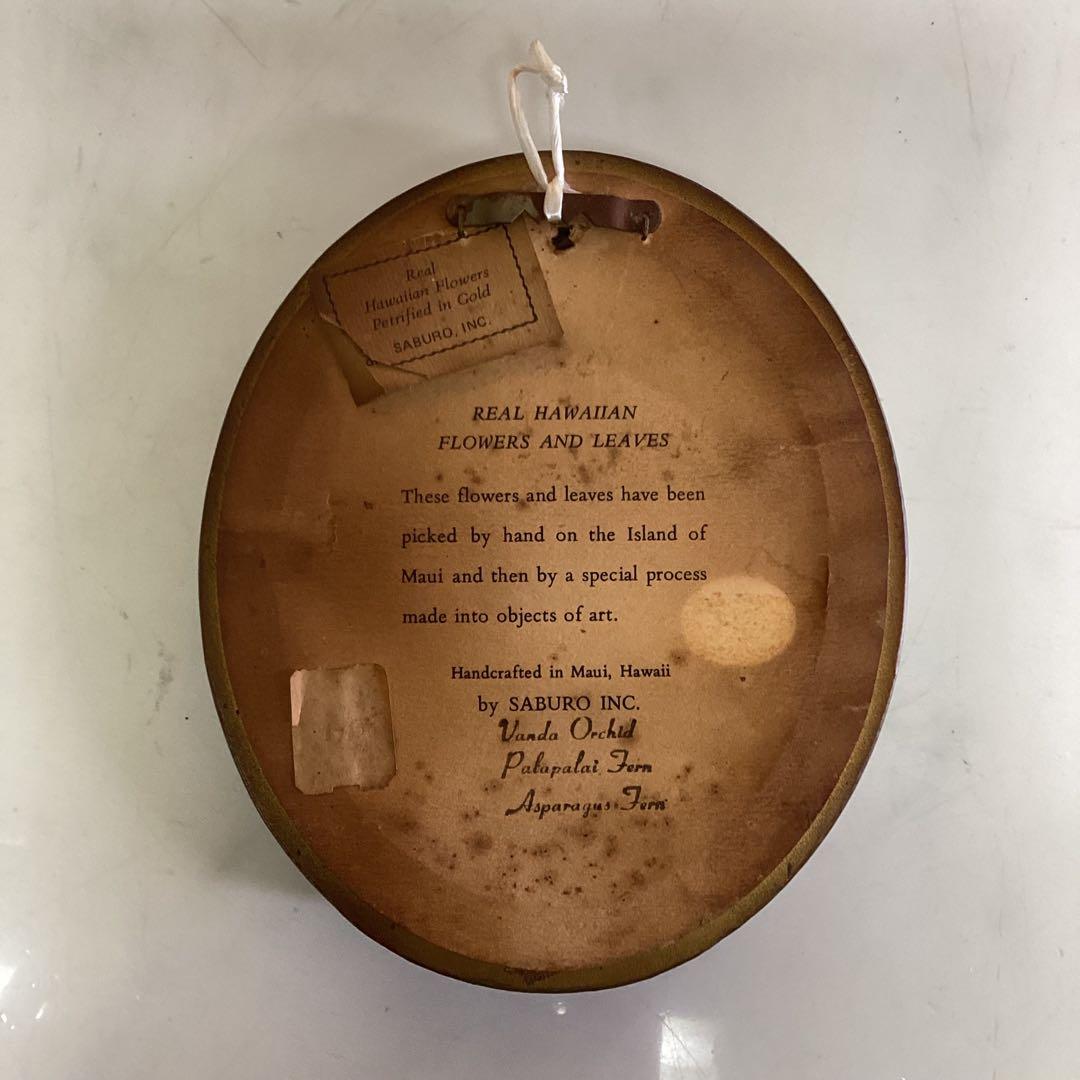 Real
Hawaiian Flowers
Petrified in Gold
SABURO, INC.
REAL HAWAIIAN
FLOWERS AND LEAVES
These flowers and leaves have been
picked by hand on the Island of
Maui and then by a special process
made into objects of art.
Handcrafted in Maui, Hawaii
by SABURO INC.
Vanda Orchid
Palapalai Fern
Asparagus Fern